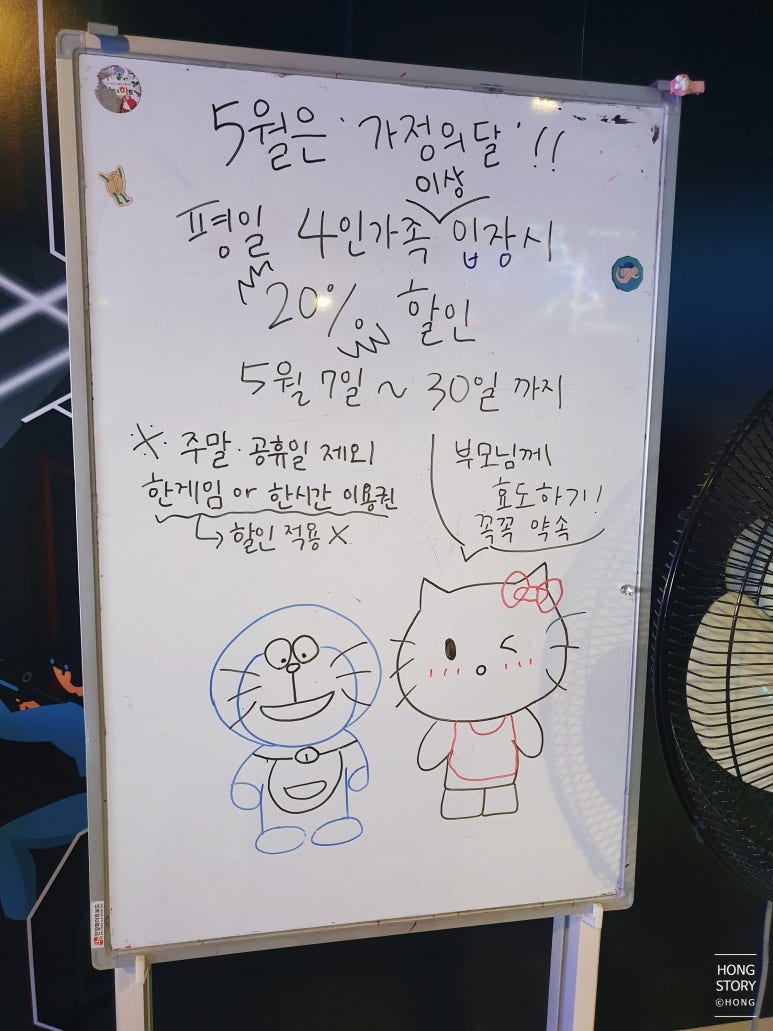 5월은 '가정의달'!!
이상
평일 4인가족 입장시
20% 할인
5월 7일 ~ 30일 까지
※ 주말·공휴일 제외
한게임 or 한시간 이용권
↳ 할인 적용 X
부모님께
효도하기!
꼭꼭 약속
HONG
STORY
©HONG